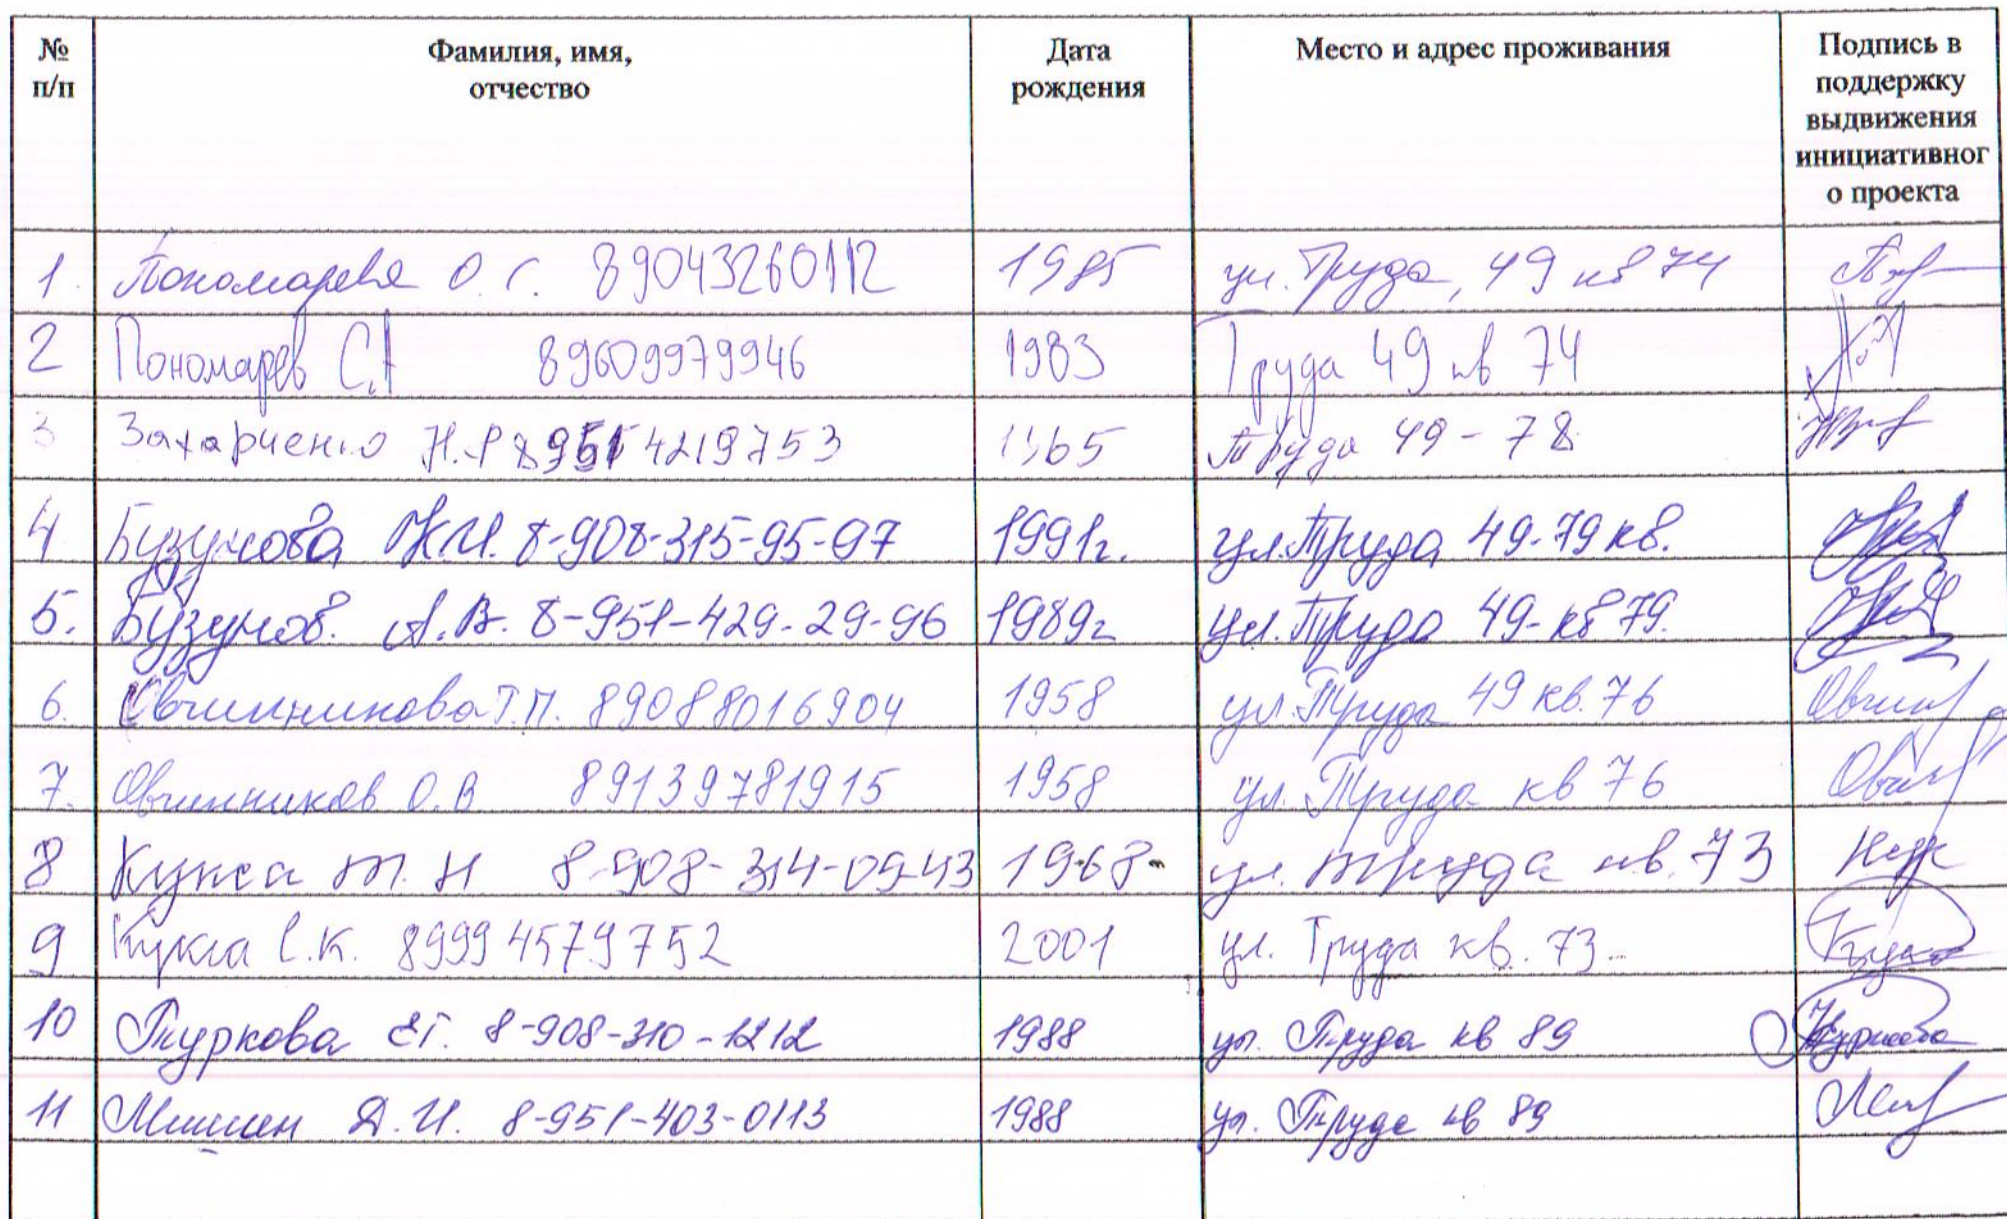 № п/п Фамилия, имя, отчество Дата рождения Место и адрес проживания Подпись в поддержку выдвижения инициативног о проекта
1. Пономарева О. Г. 89043260112 1985 ул. Труда, 49 кв 74
2 Пономарев С.А 89609979946 1983 Труда 49 кв 74
3 Захарченко Н.Р 89514219753 1965 Труда 49 - 78
4 Бузунова Ж.И. 8-908-315-95-97 1991г. ул. Труда 49-79 кв.
5. Бузунов. А.В. 8-951-429-29-96 1989г ул. Труда 49-кв 79.
6. Овчинникова Т.П. 89088016904 1958 ул. Труда 49 кв. 76
7. Овчинников О.В 89139781915 1958 ул. Труда кв 76
8 Кукса Т. Н 8-908-314-09-43 1968 ул. Труда кв. 73
9 Кукса С.К. 89994579752 2001 ул. Труда кв. 73
10 Туркова Е.Г. 8-908-310-1212 1988 ул. Труда кв 89
11 Мишин Д.И. 8-951-403-0113 1988 ул. Труда кв 89